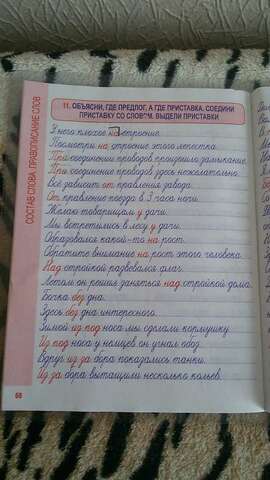 СОСТАВ СЛОВА. ПРАВОПИСАНИЕ СЛОВ
11. ОБЪЯСНИ, ГДЕ ПРЕДЛОГ, А ГДЕ ПРИСТАВКА. СОЕДИНИ
ПРИСТАВКУ СО СЛОВОМ. ВЫДЕЛИ ПРИСТАВКИ
У него плохое на строение.
Посмотри на строение этого лепестка.
При соединении проводов произошло замыкание.
При соединение проводов здесь нежелательно.
Всё зависит от правления завода.
От правление поезда в 3 часа ночи.
Желаю товарищам у дачи.
Мы встретились в лесу у дачи.
Образовался какой-то на рост.
Обратите внимание на рост этого человека.
Над стройкой развевался флаг.
Летом он решил заняться над стройкой дома.
Бочка без дна.
Здесь без дна интересного.
Зимой из под носа мы сделали кормушку.
Из под носа у немцев он угнал обоз.
Вдруг из за бора показались танки.
Из за бора вытащили несколько кольев.
68